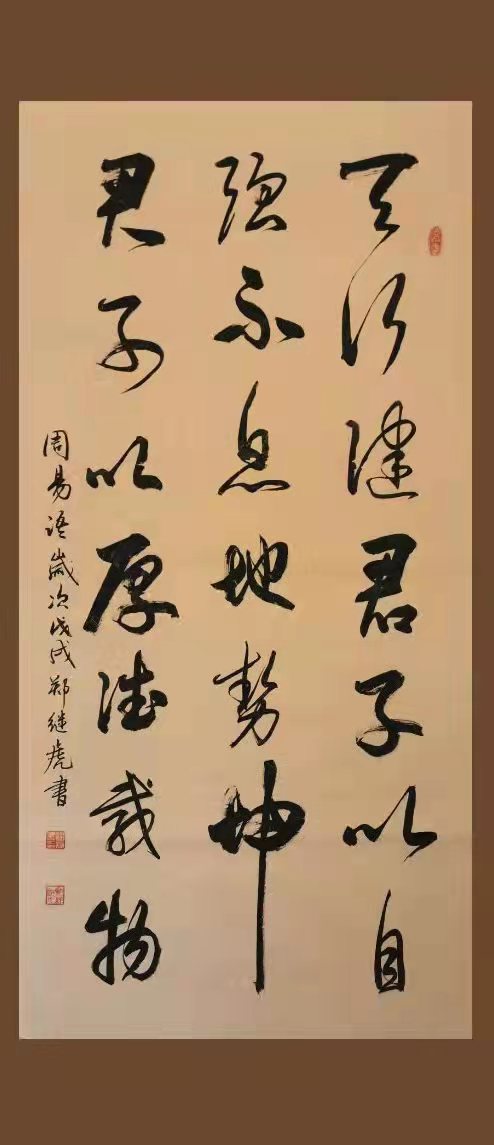 天行健君子以自
强不息地势坤
君子以厚德载物
周易语岁次戊戌郑继虎书